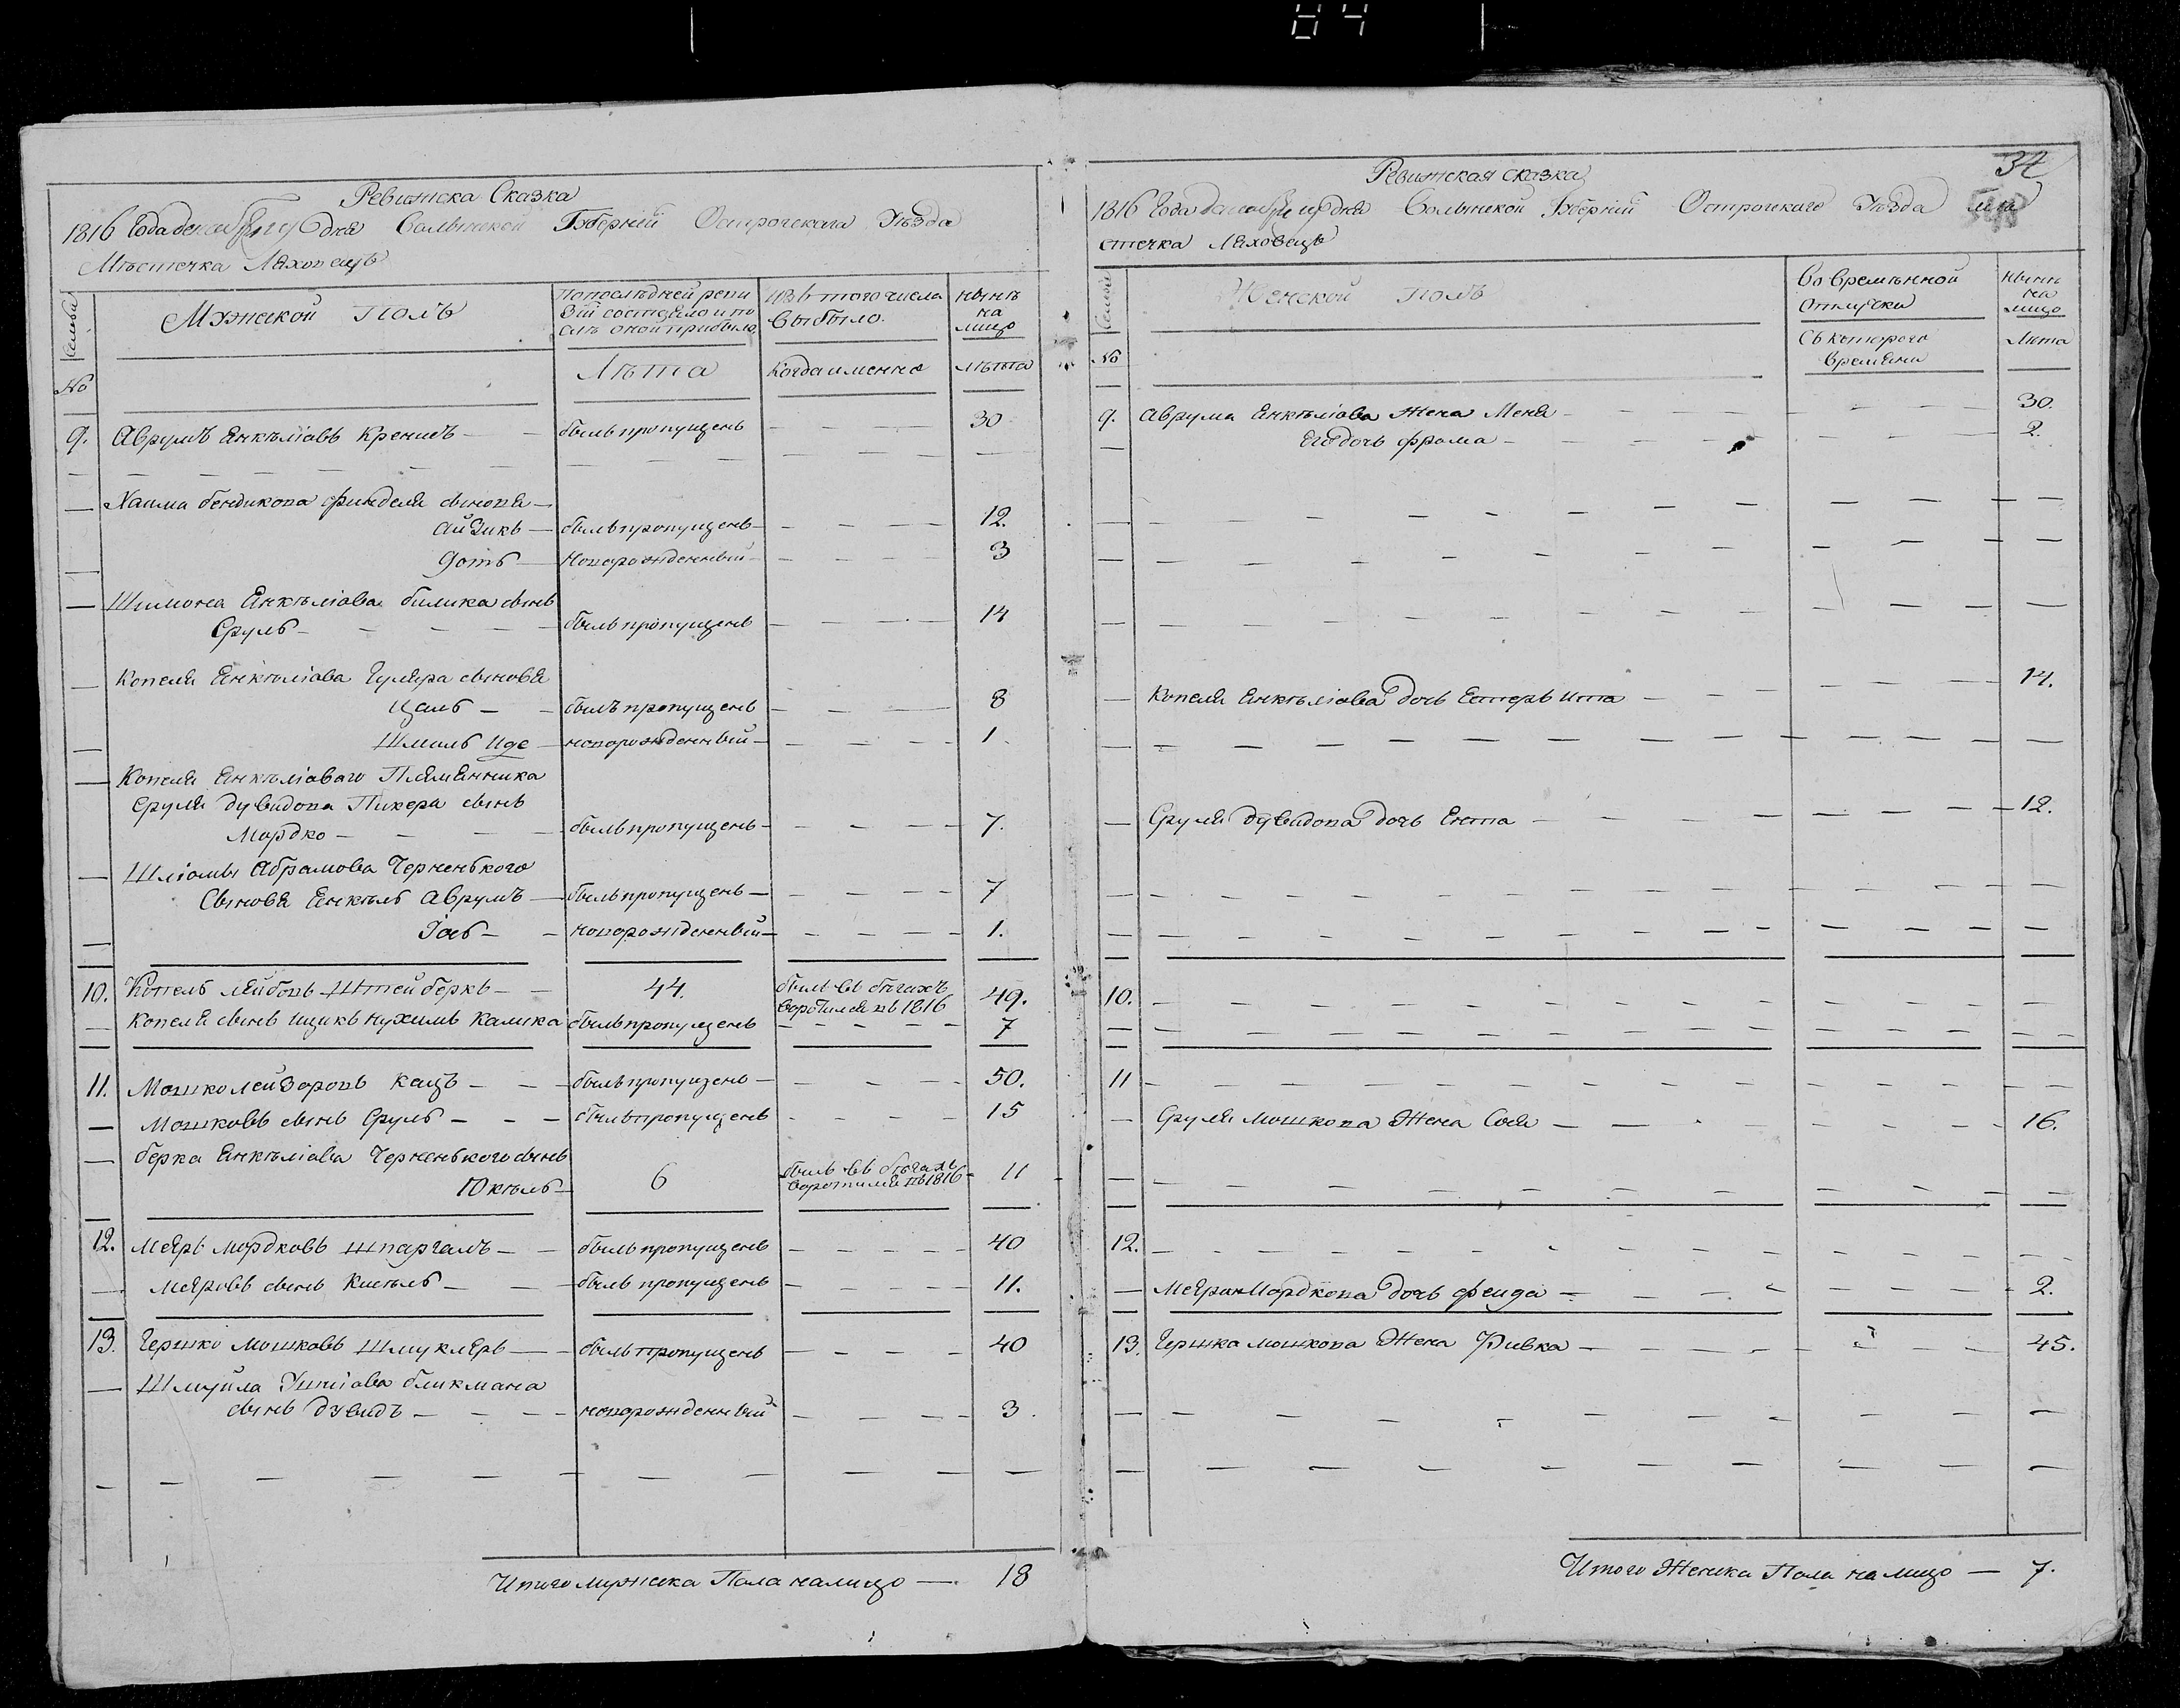 84
Ревижска Сказка
1816 Года декабря дня Волынской Губерній Острогскаго Уѣзда
Мѣстечка Ляховецъ
Семьи
№
Мужской полъ
По последней реви
зіи состояло и по
слѣ оной прибыло
Лѣта
Изъ того числа
выбыло.
Когда именно
Нынѣ
на
лицо
лѣта
9. Аврумъ Енкѣліовъ Кремисъ былъ пропущенъ 30
Хаима бендикова финделя сыновя
айзикъ былъ пропущенъ 12.
Готъ новорожденный 3
Шимона Енкѣліова билика сынъ
Сруль былъ пропущенъ 14
Копеля Енкѣліова Гуляра сыновя
Цаль былъ пропущенъ 8
Шмиль Иде новорожденный 1.
Копеля Енкѣліоваго Племянника
Сруля дувидова Пикера сынъ
Мордко былъ пропущенъ 7.
Шліомы Абрамова Черненького
Сыновя Енкѣль Аврумъ былъ пропущенъ 7
Іось новорожденный 1.
10. Копель лейбовъ Штейберкъ 44. былъ въ бѣгахъ 49.
воротился въ 1816
Копеля сынъ ицикъ нухимъ Калика былъ пропущенъ 7
11. Мошко лейзоровъ кацъ былъ пропущенъ 50.
Мошковъ сынъ Сруль былъ пропущенъ 15
берка Енкѣліова Черненького сынъ
Юкѣль 6 былъ въ бѣгахъ 11
воротился въ 1816
12. Меяръ мордковъ шпаргалъ былъ пропущенъ 40
меяровъ сынъ Кисѣль былъ пропущенъ 11.
13. Гершко мошковъ шмуклеръ былъ пропущенъ 40
Шмуйла Ушіова бликмана
сынъ дувидъ новорожденный 3.
Итого мужска Пола налицо 18
34
Ревижская сказка
1816 Года декабря дня Волынской Губерній Острогского Уѣзда мѣ
стечка Ляховецъ
Семьи
№
Женской полъ
Во временной
отлучки
Съ которого
времени
Нынѣ
на
лицо
Лѣта
9. Аврума Енкѣліова Жена Меня 30.
Его дочь фрома 2.
Копеля Енкѣліова дочь Естеръ ита 14.
Сруля дувидова дочь Ента 12.
10.
11
Сруля мошкова Жена Сося 16.
12.
Меяра Мордкова дочь фейга 2.
13. Гершка мошкова Жена Ривка 45.
Итого Женска Пола на лицо 7.